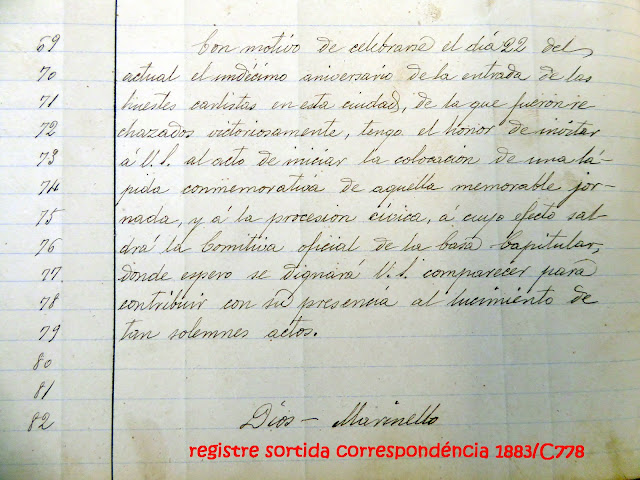 69 Con motivo de celebrarse el día 22 del
70 actual el undécimo aniversario de la entrada de las
71 huestes carlistas en esta ciudad, de la que fueron re
72 chazados victoriosamente, tengo el honor de invitar
73 á V. S. al acto de iniciar la colocación de una lá-
74 pida conmemorativa de aquella memorable jor-
75 nada, y á la procesion cívica, á cuyo efecto sal
76 drá la Comitiva oficial de la Casa Capitular,
77 donde espero se dignará V. S. comparecer para
78 contribuir con su presencia al lucimiento de
79 tan solemnes actos.
80
81
82 Dios — Marinello
registre sortida correspondéncia 1883/C778